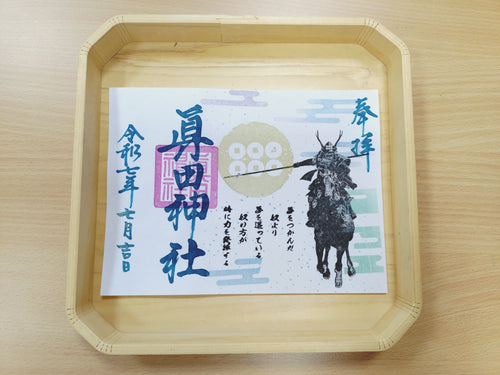 奉拝
夢をつかんだ
奴より
夢を追っている
奴の方が
時に力を発揮する
眞田神社
令和七年 七月吉日